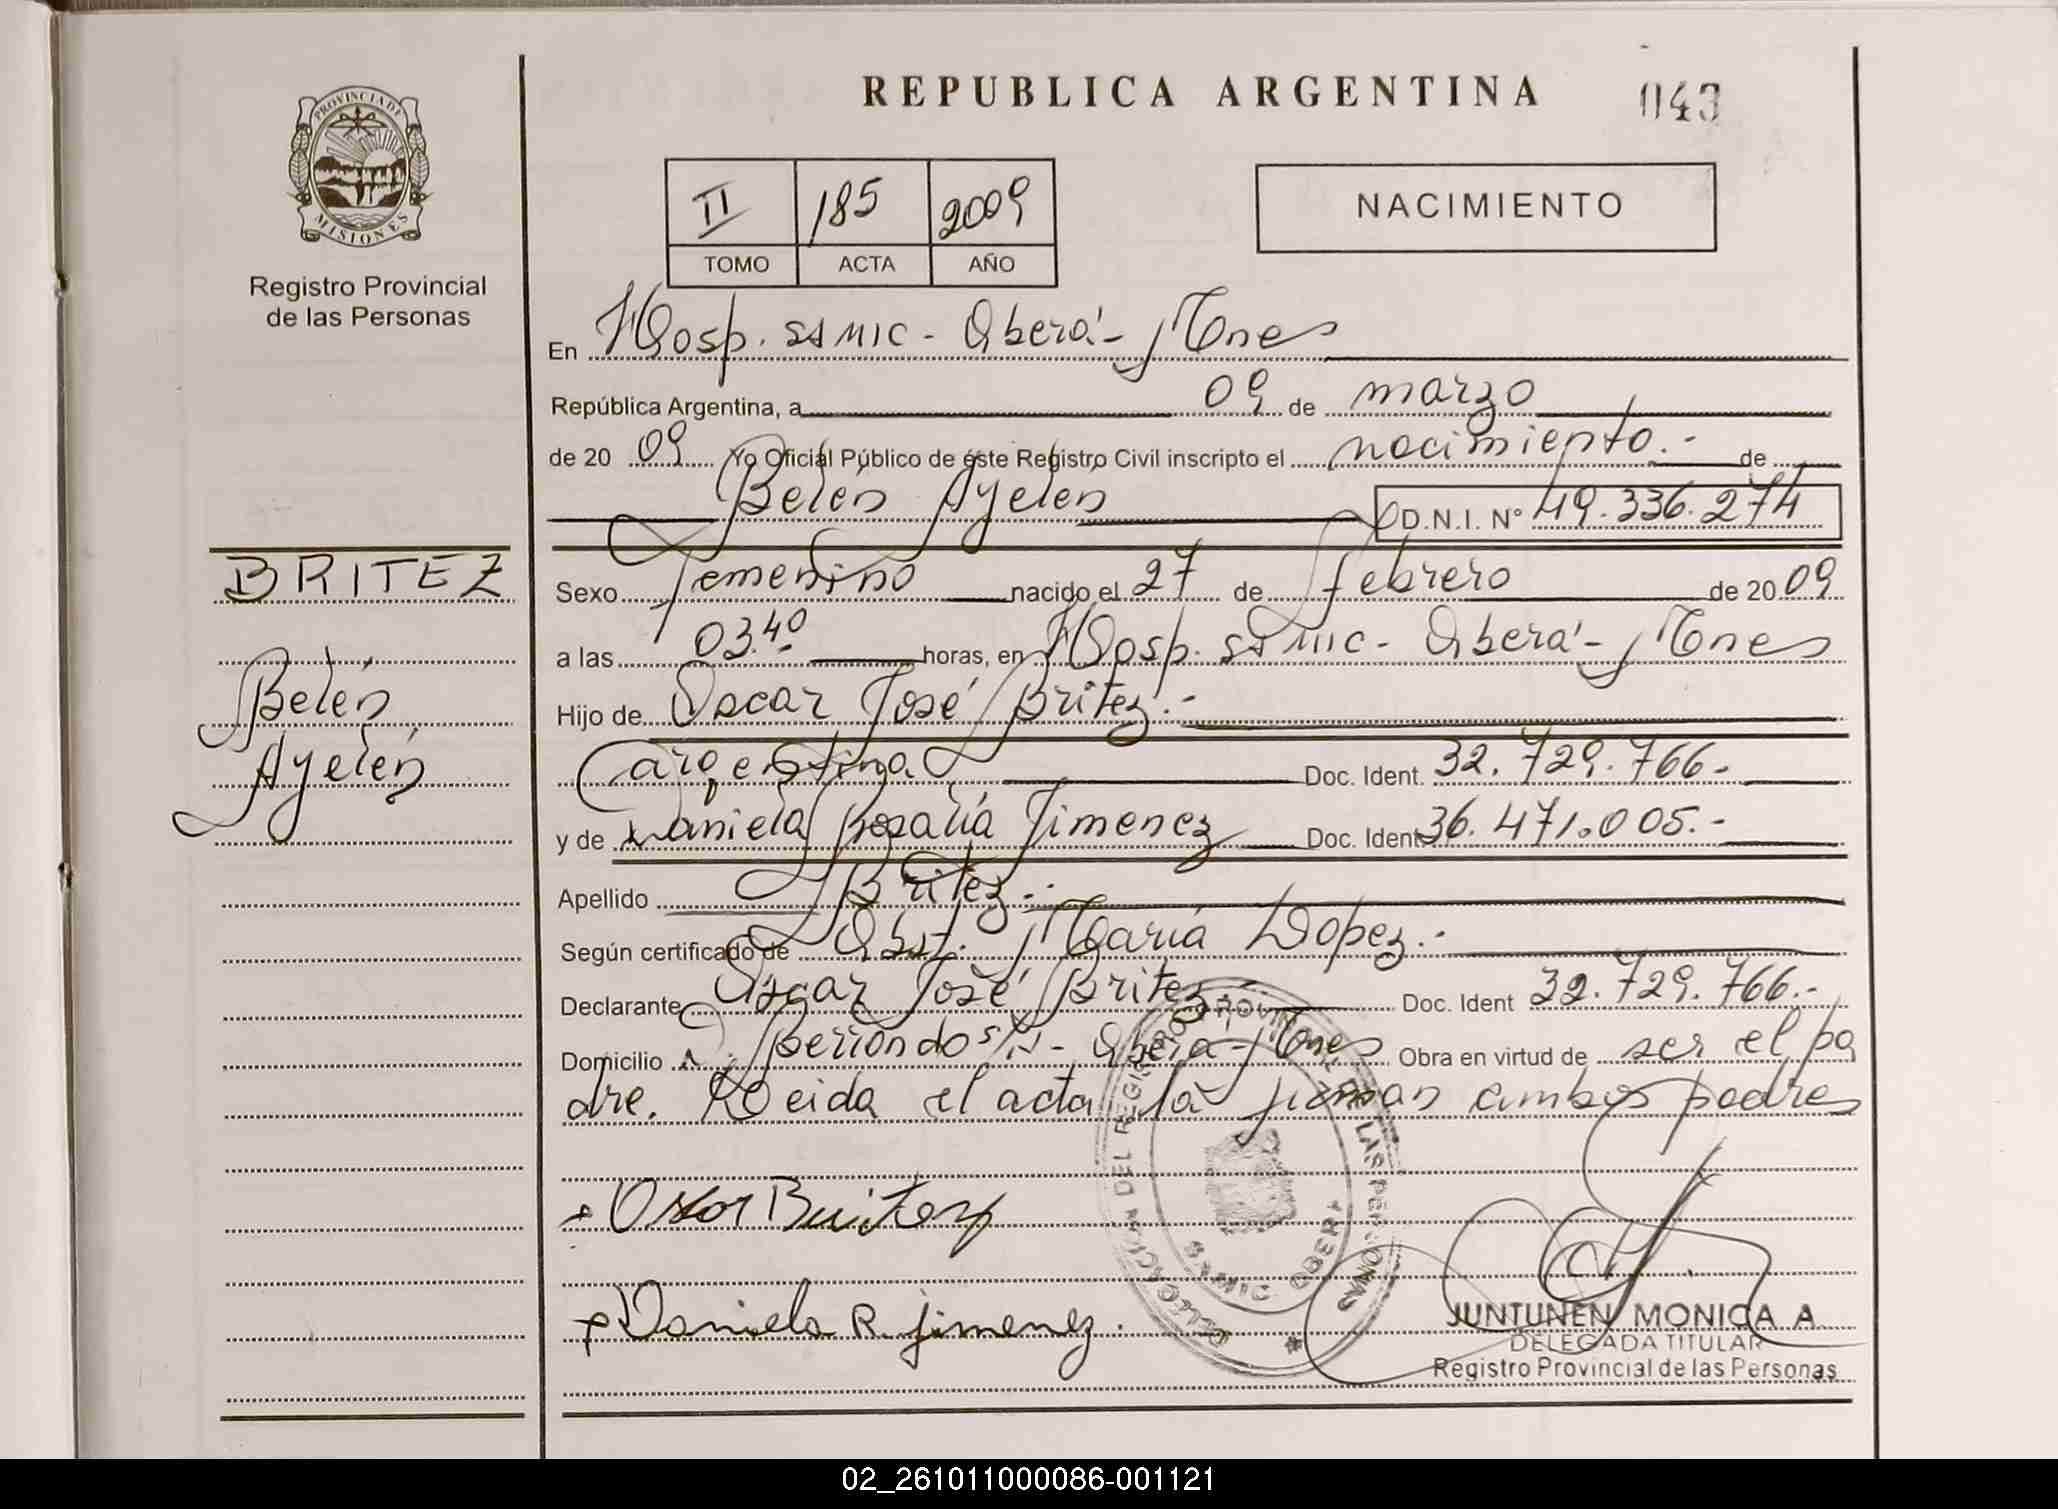 REPUBLICA ARGENTINA
043
PROVINCIA DE
MISIONES
Registro Provincial
de las Personas
II 185 2009
TOMO ACTA AÑO
NACIMIENTO
En Hosp. SAMIC - Oberá - Mnes
República Argentina, a 09 de marzo
de 20 09 Yo Oficial Público de éste Registro Civil inscripto el nacimiento.- de
Belén Ayelén D.N.I. N° 49.336.274
BRITEZ
Belén
Ayelén
Sexo femenino nacido el 27 de febrero de 20 09
a las 03.40 horas, en Hosp. SAMIC - Oberá - Mnes
Hijo de Oscar José Britez.-
argentina Doc. Ident. 32.729.766.-
y de Daniela Rosalia Jimenez Doc. Ident 36.471.005.-
Apellido Britez.-
Según certificado de Obst. María Lopez.-
Declarante Oscar José Britez Doc. Ident 32.729.766.-
Domicilio Berrondo s/n - Oberá - Mnes Obra en virtud de ser el pa
dre. Leida el acta la firman ambos padres
Oscar Britez
Daniela R. Jimenez.
DELEGACION DEL REGISTRO PROVINCIAL DE LAS PERSONAS
SAMIC OBERA
JUNTUNEN MONICA A.
DELEGADA TITULAR
Registro Provincial de las Personas
02_261011000086-001121